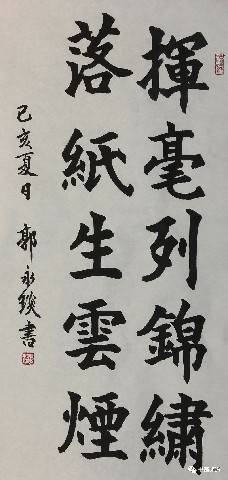 揮毫列錦繡
落紙生雲煙
己亥夏日 郭永琰書